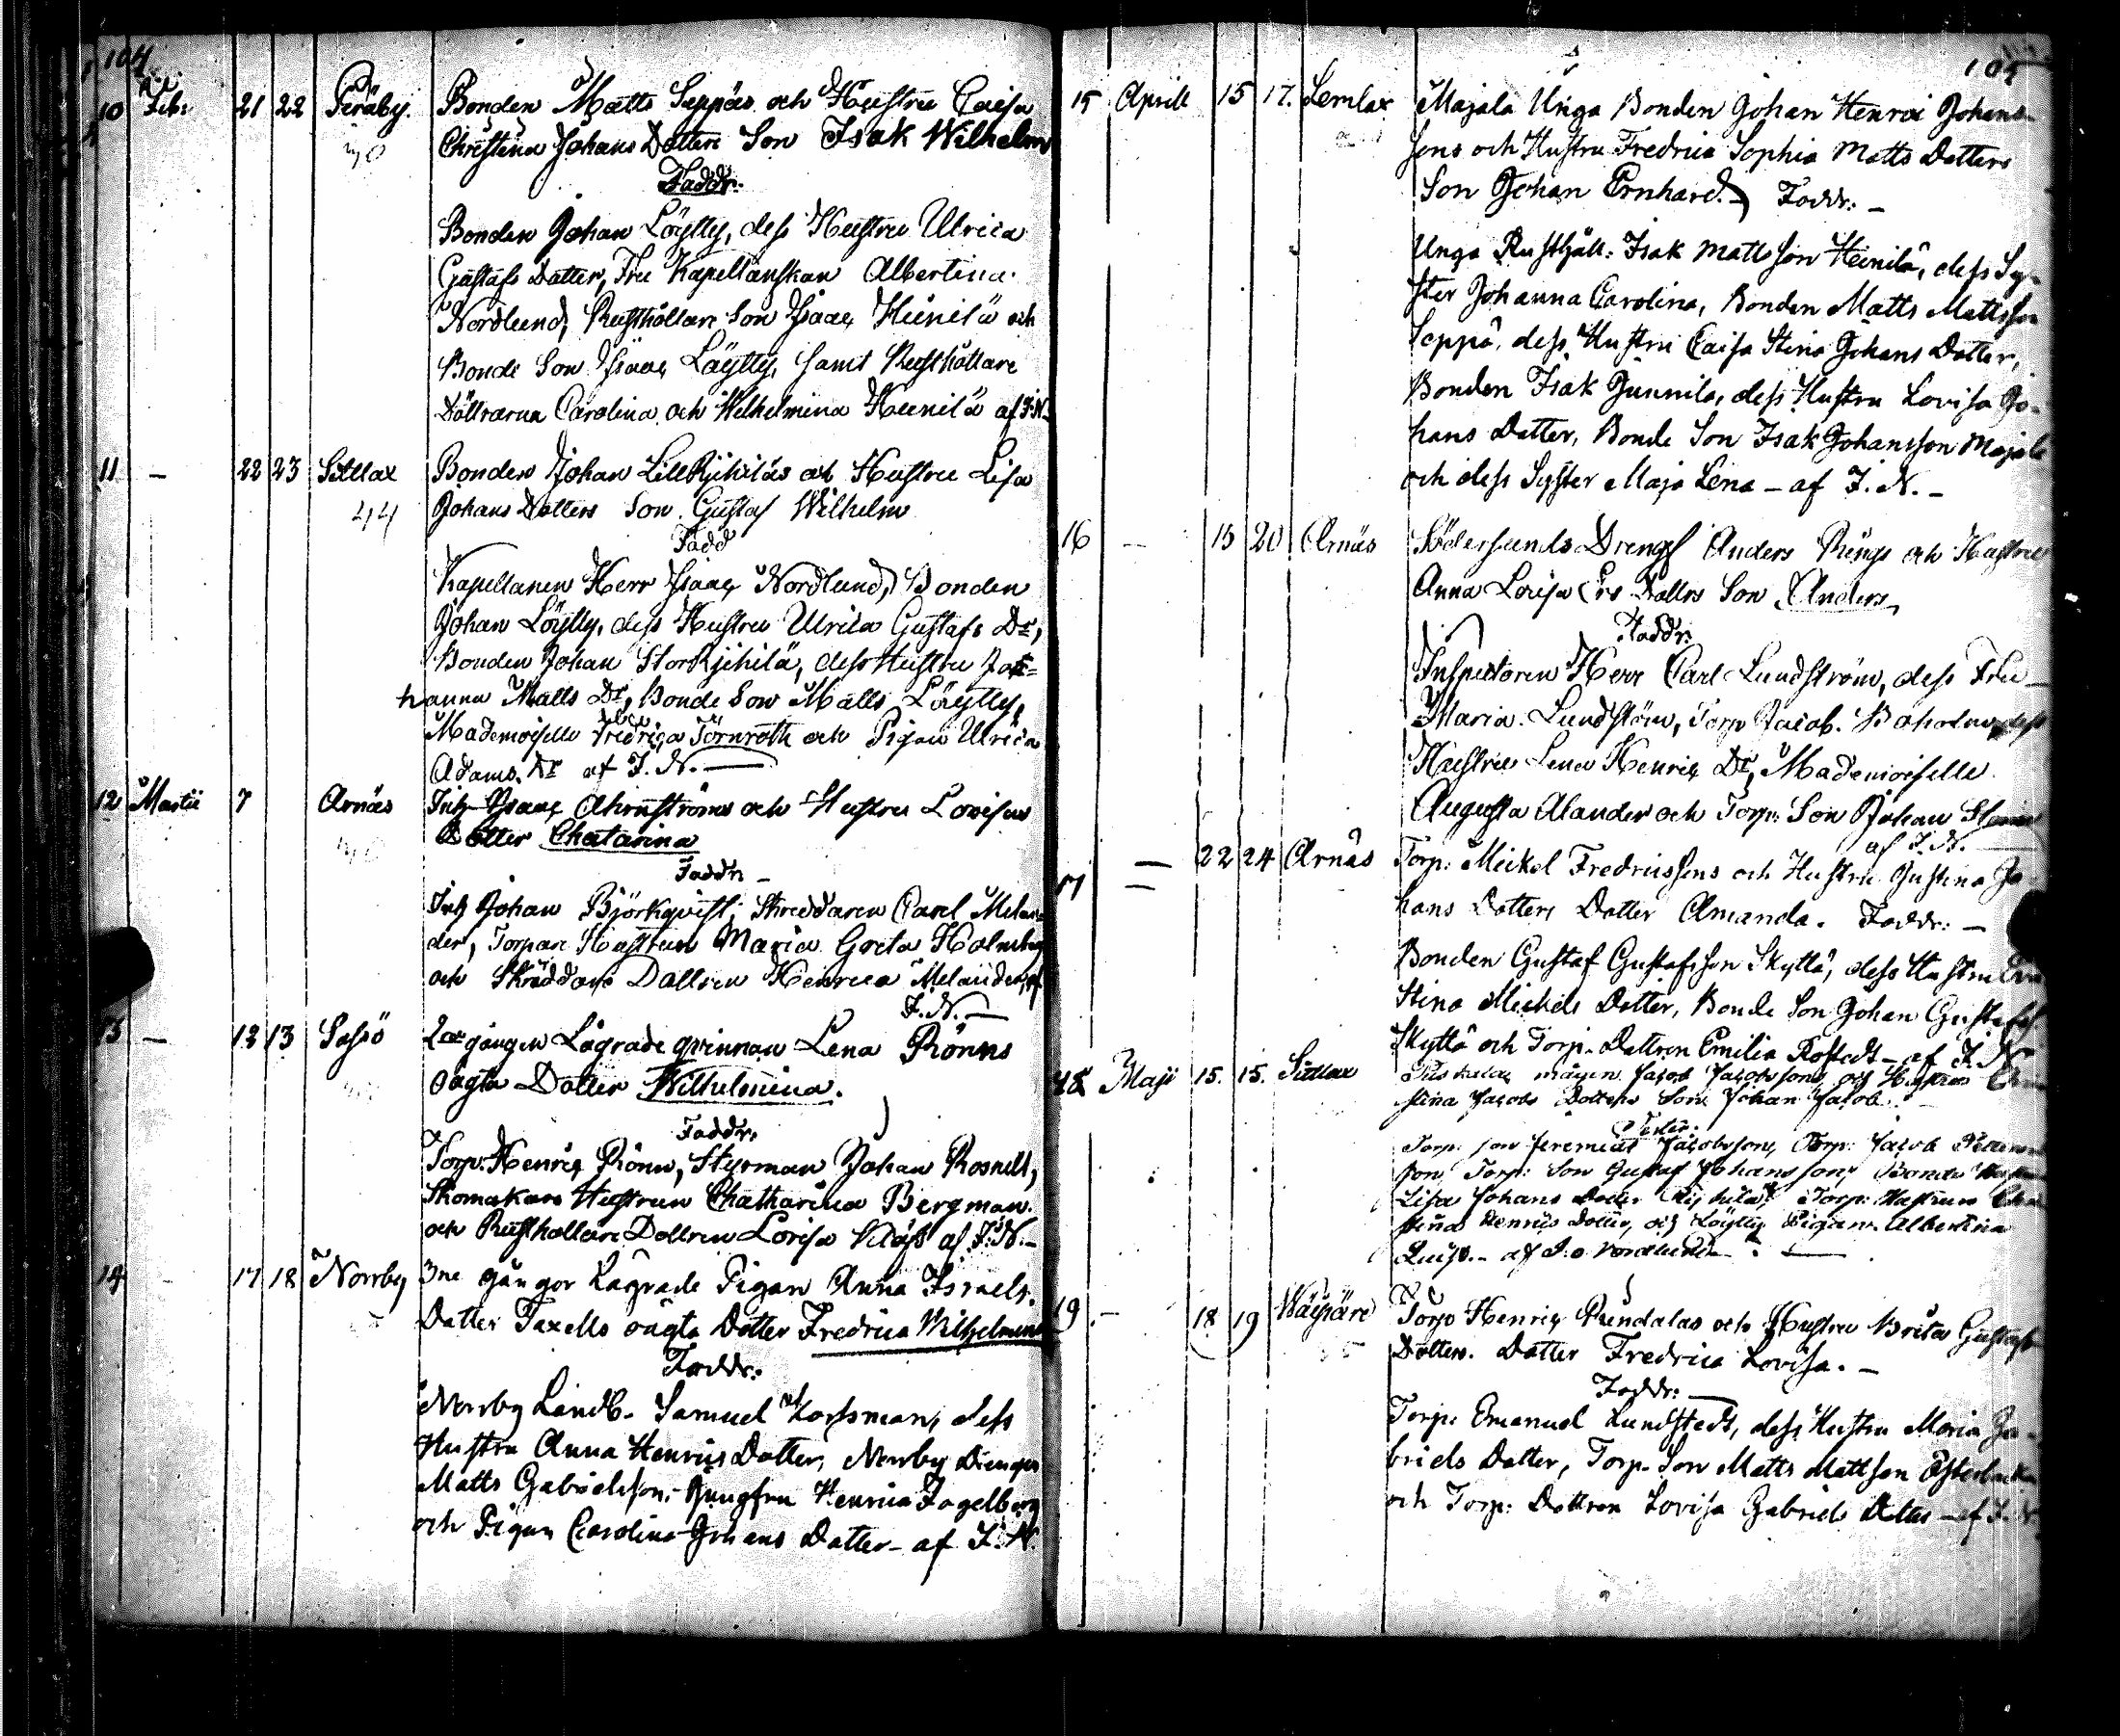 104
10 Feb: 21 22 Peräby. Bonden Matts Seppäs och Hustru Caisa
Christina Johans Dotters Son Isak Wilhelm
Faddr:
Bonden Johan Löylly, dess Hustru Ulrica
Gustafs Dotter, Fru Kapellanskan Albertina
Nordlund, Rusthållare Son Isaac Heinilä och
Bonde Son Isaac Löylly, samt Rusthållare
Döttrarna Carolina och Wilhelmina Heinilä af I. N.
11 - 22 23 Sittlax Bonden Johan LillKyhiläs och Hustru Lisa
44 Johans Dotters Son Gustaf Wilhelm
Fadd
Kapellanen Herr Isaac Nordlund, Bonden
Johan Löylly, dess Hustru Ulrica Gustafs Dr,
Bonden Johan StorKyhilä, dess Hustru Jo=
hanna Matts Dr, Bonde Son Matts Löylly,
Mademoiselle Fredrica Törnroth och Pigan Ulrica
Adams. Dr af I. N.
12 Martii 7 Arnäs Inh Isaac Ahrnströms och Hustru Lovisas
Dotter Chatarina
Faddr: -
Inh Johan Björkqvist, Skreddaren Carl Melan
der, Torpare Hustrun Maria Greta Holmberg
och Skräddare Dottren Henrica Melander, af
I. N.
13 - 12 13 Sassö 2ne gången Lägrade qvinnan Lena Rönns
oägta Dotter Wilhelmina.
Faddr:
Torp: Henric Rönn, Styrman Johan Rosnell,
Skomakare Hustrun Chatharina Bergman
och Rusthållare Dottren Lovisa Klåss af I. N.
14 17 18 Norrby 3ne gångor Lägrade Pigan Anna Israels
Dotter Taxells oägta Dotter Fredrica Wilhelmina
Faddr:
Norrby Landb. Samuel Korsman, dess
Hustru Anna Henrics Dotter, Norrby Drengen
Matts Gabrielsson, Jungfru Henrica Fagelberg
och Pigan Carolina Johans Dotter - af I. N.
105
15 Aprill 15 17. Lemlax Majala Unga Bonden Johan Henric Johans-
sons och Hustru Fredrica Sophia Matts Dotters
Son Johan Ernhard. - Faddr: -
Unga Rusthåll: Isak Mattsson Heinilä, dess Sy-
ster Johanna Carolina, Bonden Matts Mattsson
Seppä, dess Hustru Caisa Stina Johans Dotter,
Bonden Isak Junnila, dess Hustru Lovisa Jo-
hans Dotter, Bonde Son Isak Johansson Majala
och dess Syster Maja Lena - af I. N. -
16 - 15 20 Arnäs Södersunds Drengs Anders Rings och Hustru
Anna Lovisa Ers Dotters Son Anders
Faddr:
Inspectoren Herr Carl Lundström, dess Fru
Maria Lundström, Torp Jacob Boholm, dess
Hustru Lena Henric Dr, Mademoiselle
Augusta Alander och Torp: Son Johan
af I. N.
17 - 22 24 Arnäs Torp: Mickel Fredricssons och Hustru Justina Jo
hans Dotters Dotter Amanda. Faddr: -
Bonden Gustaf Gustafsson Skyttä, dess Hustru
Stina Mickels Dotter, Bonde Son Johan Gustafss.
Skyttä och Torp. Dottren Emilia Rostedt - af I. N
18 Maji 15. 15. Sittlax mågen Jacob Jacobssons och Hustrus
stina Jacobs Dotters Son Johan Jacob
Fadr:
Torp: son Jeremias Jacobsson, Torp: Jacob
son, Torp: Son Gustaf Johansson, Bonde
Lisa Johans Dotter Kyhilä, Torp: Hustrun
stina Henrics Dotter, och Löylly Pigan Albertina
af I. Nordlund
19 - 18 19 Wäysäri Torp Henric Rundalas och Hustru Brita Gustafs
Dotters. Dotter Fredrica Lovisa. -
Faddr:
Torp: Emanuel Lundstedt, dess Hustru Maria Ga-
briels Dotter, Torp. Son Matts Mattsson Österbacka
och Torp: Dottren Lovisa Gabriels Dotter - af I. N